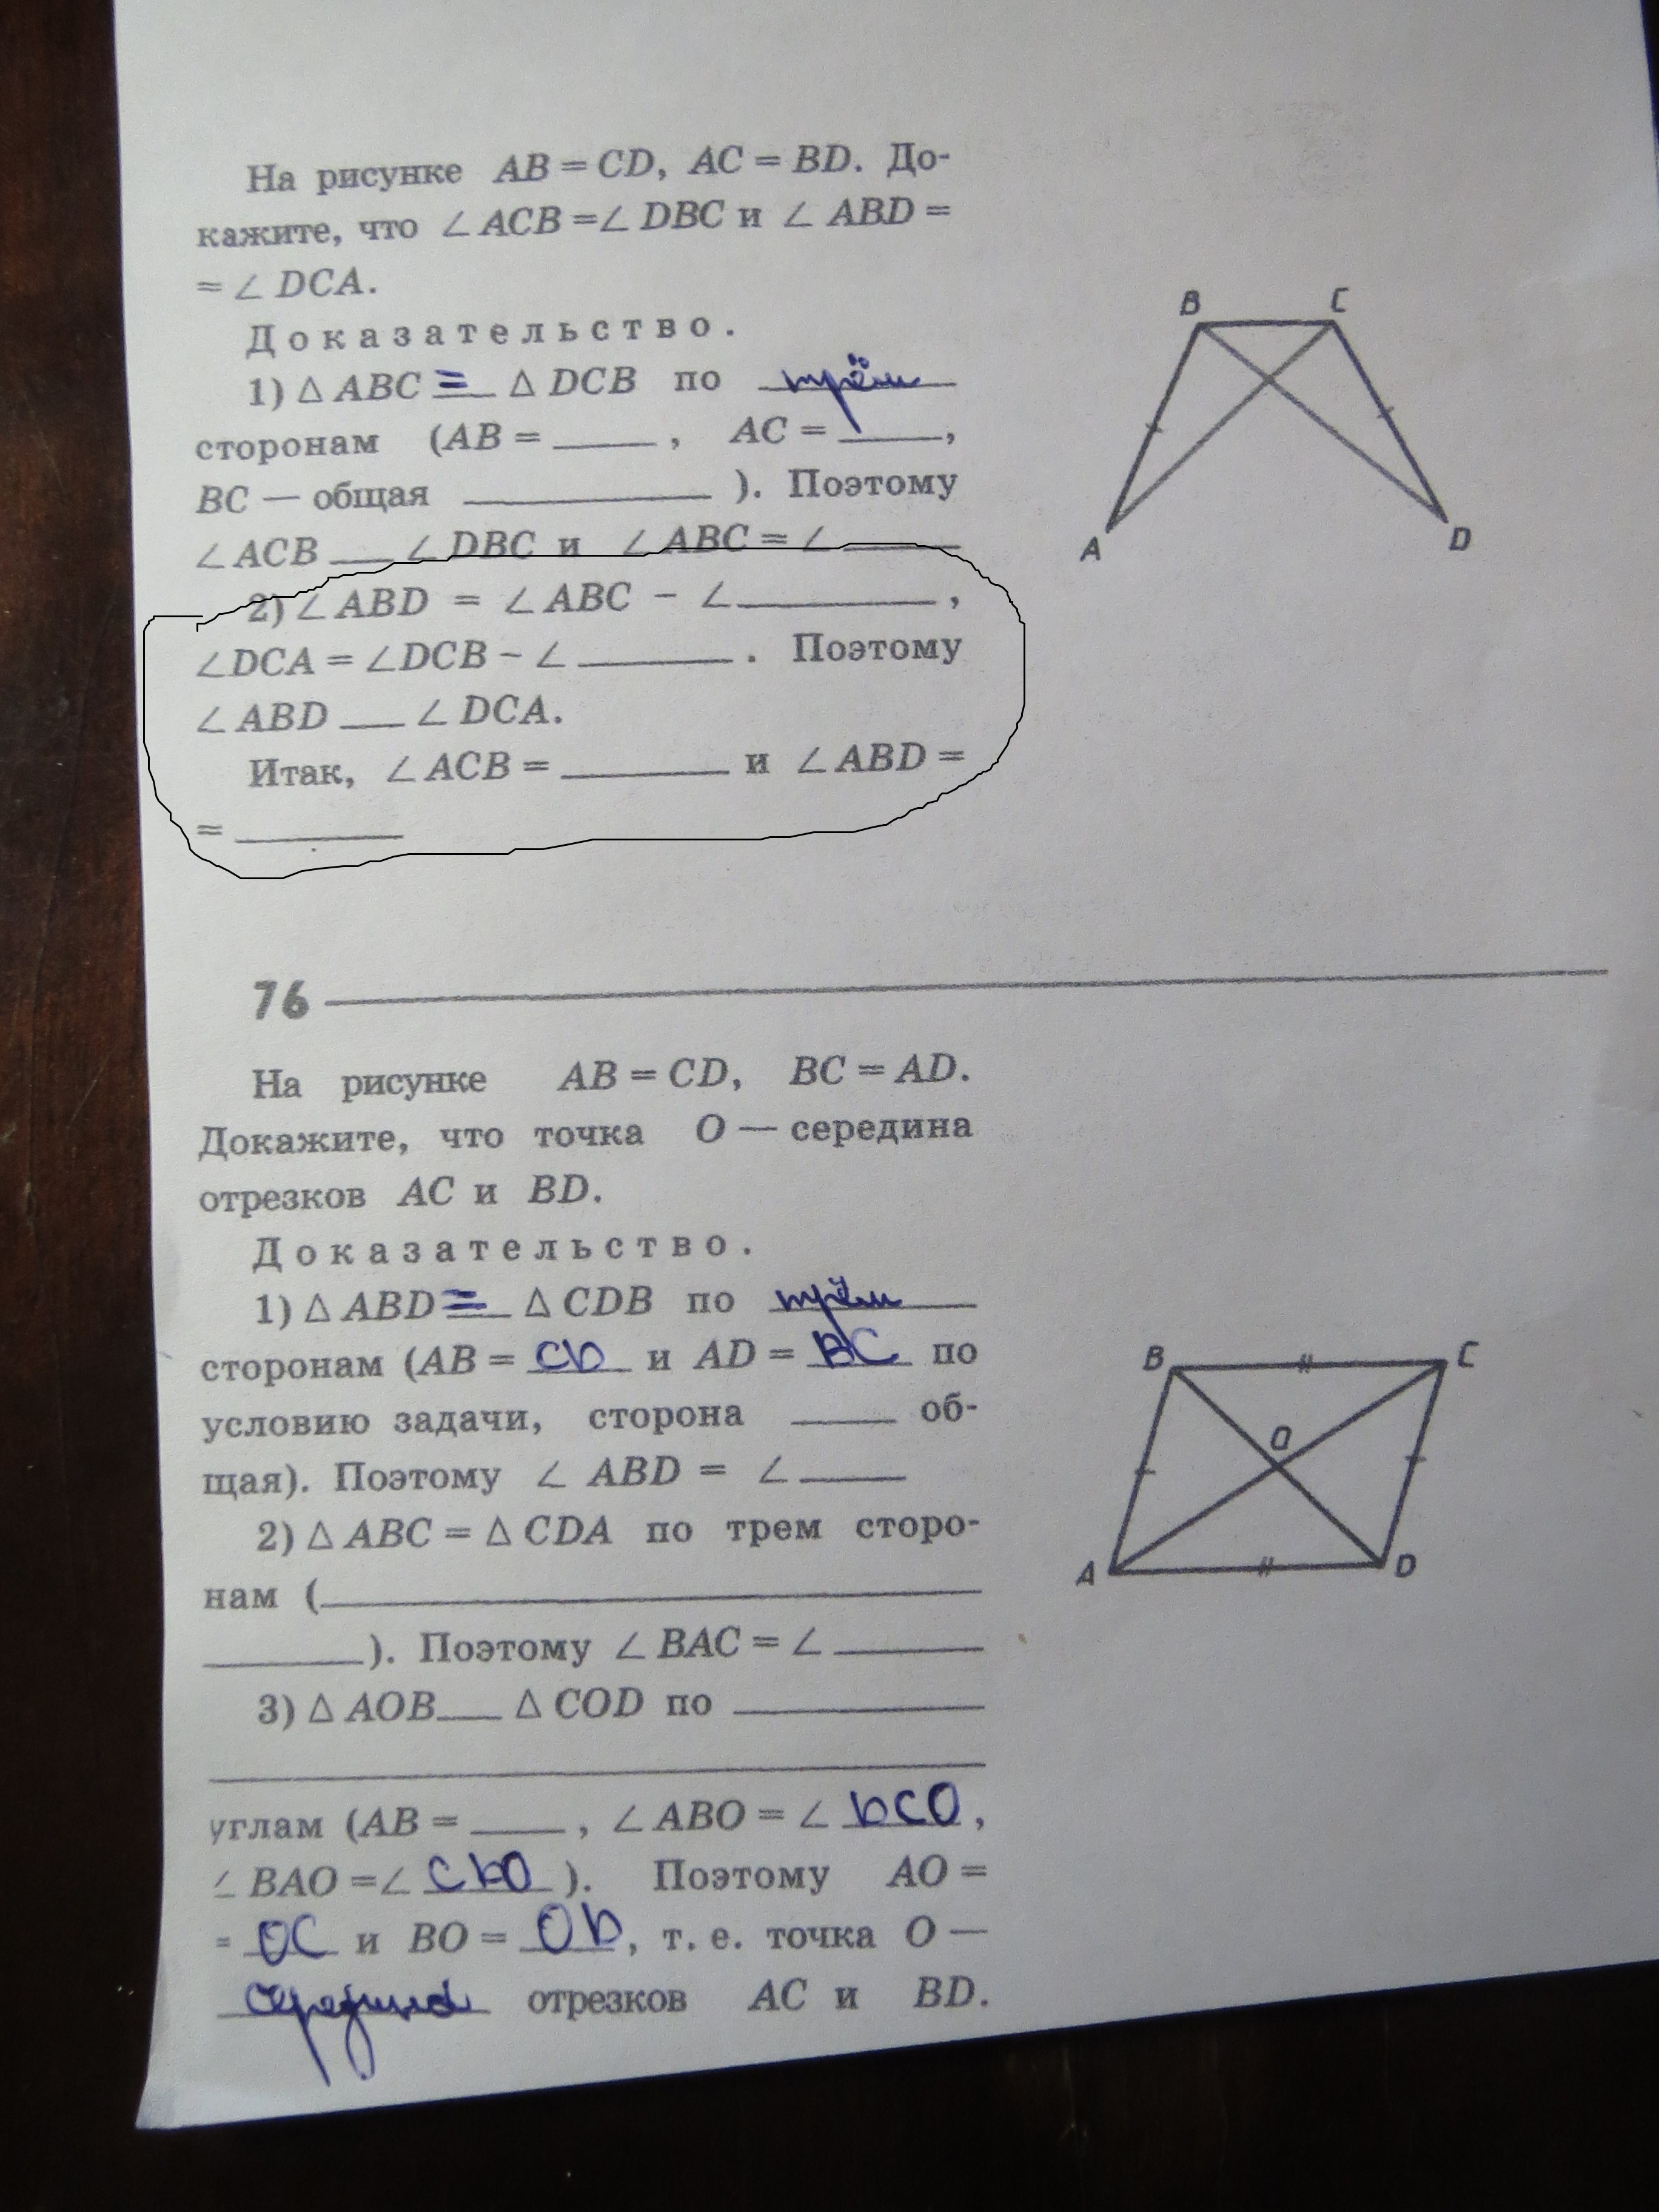 На рисунке AB = CD, AC = BD. До-
кажите, что ∠ ACB =∠ DBC и ∠ ABD =
= ∠ DCA.
Доказательство.
1) △ ABC = △ DCB по трём
сторонам (AB = ____ , AC = ____,
BC — общая ________ ). Поэтому
∠ ACB __ ∠ DBC и ∠ ABC = ∠ ____
2) ∠ ABD = ∠ ABC − ∠ ________ ,
∠DCA = ∠DCB − ∠ ______ . Поэтому
∠ ABD __ ∠ DCA.
Итак, ∠ ACB = ______ и ∠ ABD =
= ______
B C
A D
76
На рисунке AB = CD, BC = AD.
Докажите, что точка O — середина
отрезков AC и BD.
Доказательство.
1) △ ABD = △ CDB по трём
сторонам (AB = CD и AD = BC по
условию задачи, сторона ____ об-
щая). Поэтому ∠ ABD = ∠ ____
2) △ ABC = △ CDA по трем сторо-
нам (________________
______). Поэтому ∠ BAC = ∠ ______
3) △ AOB __ △ COD по ________
________________
углам (AB = ____ , ∠ ABO = ∠ DCO,
∠ BAO =∠ CDO ). Поэтому AO =
= OC и BO = OD, т. е. точка O —
середина отрезков AC и BD.
B C
O
A D